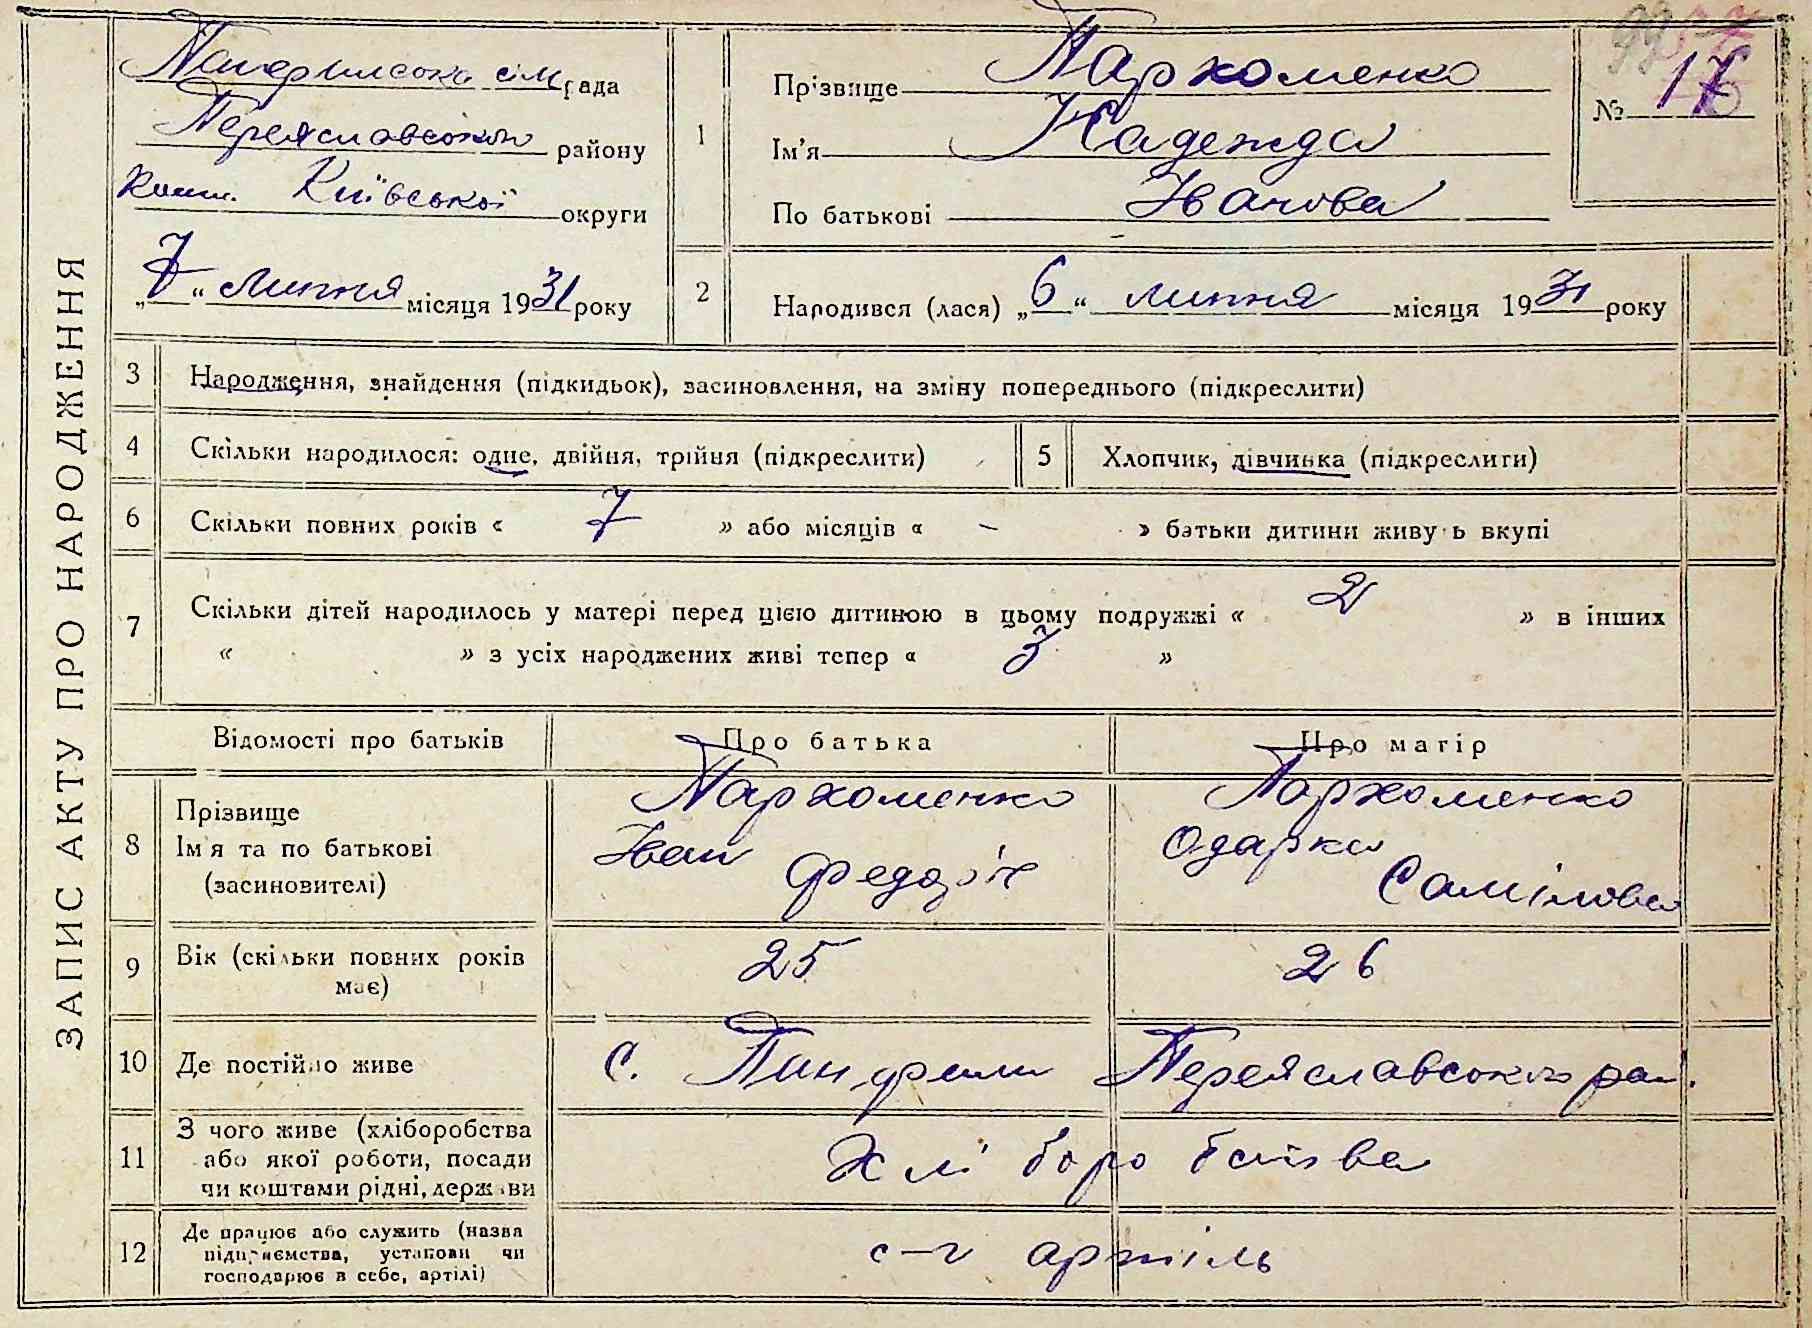 ЗАПИС АКТУ ПРО НАРОДЖЕННЯ
сіл рада
Переяславського району
Колиш. Київської округи
„7“ липня місяця 1931 року
1
Прізвище Пархоменко
Ім'я Надежда
По батькові Іванова
№ 17
2
Народився (лася) „6“ липня місяця 1931 року
3 Народження, знайдення (підкидьок), засиновлення, на зміну попереднього (підкреслити)
4 Скільки народилося: одне, двійня, трійня (підкреслити)
5 Хлопчик, дівчинка (підкреслити)
6 Скільки повних років « 7 » або місяців « – » батьки дитини живуть вкупі
7 Скільки дітей народилось у матері перед цією дитиною в цьому подружжі « 2 » в інших
« » з усіх народжених живі тепер « 3 »
Відомості про батьків Про батька Про матір
8 Прізвище
Ім'я та по батькові
(засиновителі)
Пархоменко
Іван Федоріч
Пархоменко
Одарка
Самілова
9 Вік (скільки повних років
має)
25 26
10 Де постійно живе
с. Переяславського рай.
11 З чого живе (хліборобства
або якої роботи, посади
чи коштами рідні, держави
Хліборобства
12 Де працює або служить (назва
підприємства, установи чи
господарює в себе, артілі)
с-г артіль